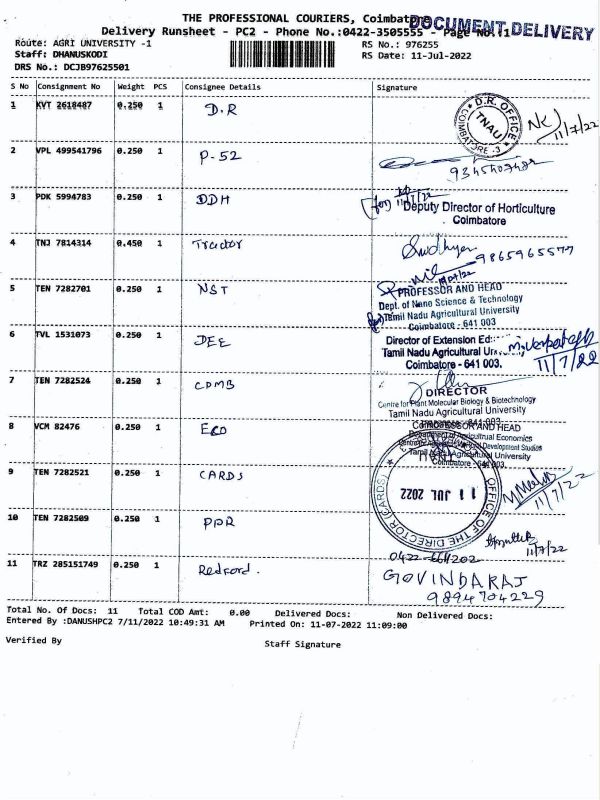 THE PROFESSIONAL COURIERS, Coimbatore
DOCUMENT DELIVERY
Delivery Runsheet - PC2 - Phone No.:0422-3505555 - Page No.:1
Route: AGRI UNIVERSITY -1
RS No.: 976255
Staff: DHANUSKODI
RS Date: 11-Jul-2022
DRS No.: DCJB97625501
S No Consignment No Weight PCS Consignee Details Signature
1 KVT 2618487 0.250 1 D.R
D.R. OFFICE TNAU COIMBATORE -3
11/7/22
2 VPL 499541796 0.250 1 P-52
3 PDK 5994783 0.250 1 DDH
(for) 11/7/22
Deputy Director of Horticulture
Coimbatore
4 TNJ 7814314 0.450 1 Tractor
9865965577
5 TEN 7282701 0.250 1 NST
PROFESSOR AND HEAD
Dept. of Nano Science & Technology
Tamil Nadu Agricultural University
Coimbatore - 641 003
6 TVL 1531073 0.250 1 DEE
Director of Extension Ed:
Tamil Nadu Agricultural Un
Coimbatore - 641 003.
11/7/22
7 TEN 7282524 0.250 1 CPMB
DIRECTOR
Centre for Plant Molecular Biology & Biotechnology
Tamil Nadu Agricultural University
Coimbatore - 641 003.
8 VCM 82476 0.250 1 ECO
PROFESSOR AND HEAD
Department of Agricultural Economics
Development Studies
Tamil Nadu Agricultural University
Coimbatore - 641 003.
9 TEN 7282521 0.250 1 CARDS
OFFICE OF THE DIRECTOR (CARDS)
11 JUL 2022
11/7/22
10 TEN 7282509 0.250 1 PPR
11/7/22
11 TRZ 285151749 0.250 1 Redford.
GOVINDARAJ
9894704229
Total No. Of Docs: 11 Total COD Amt: 0.00 Delivered Docs: Non Delivered Docs:
Entered By :DANUSHPC2 7/11/2022 10:49:31 AM Printed On: 11-07-2022 11:09:00
Verified By Staff Signature